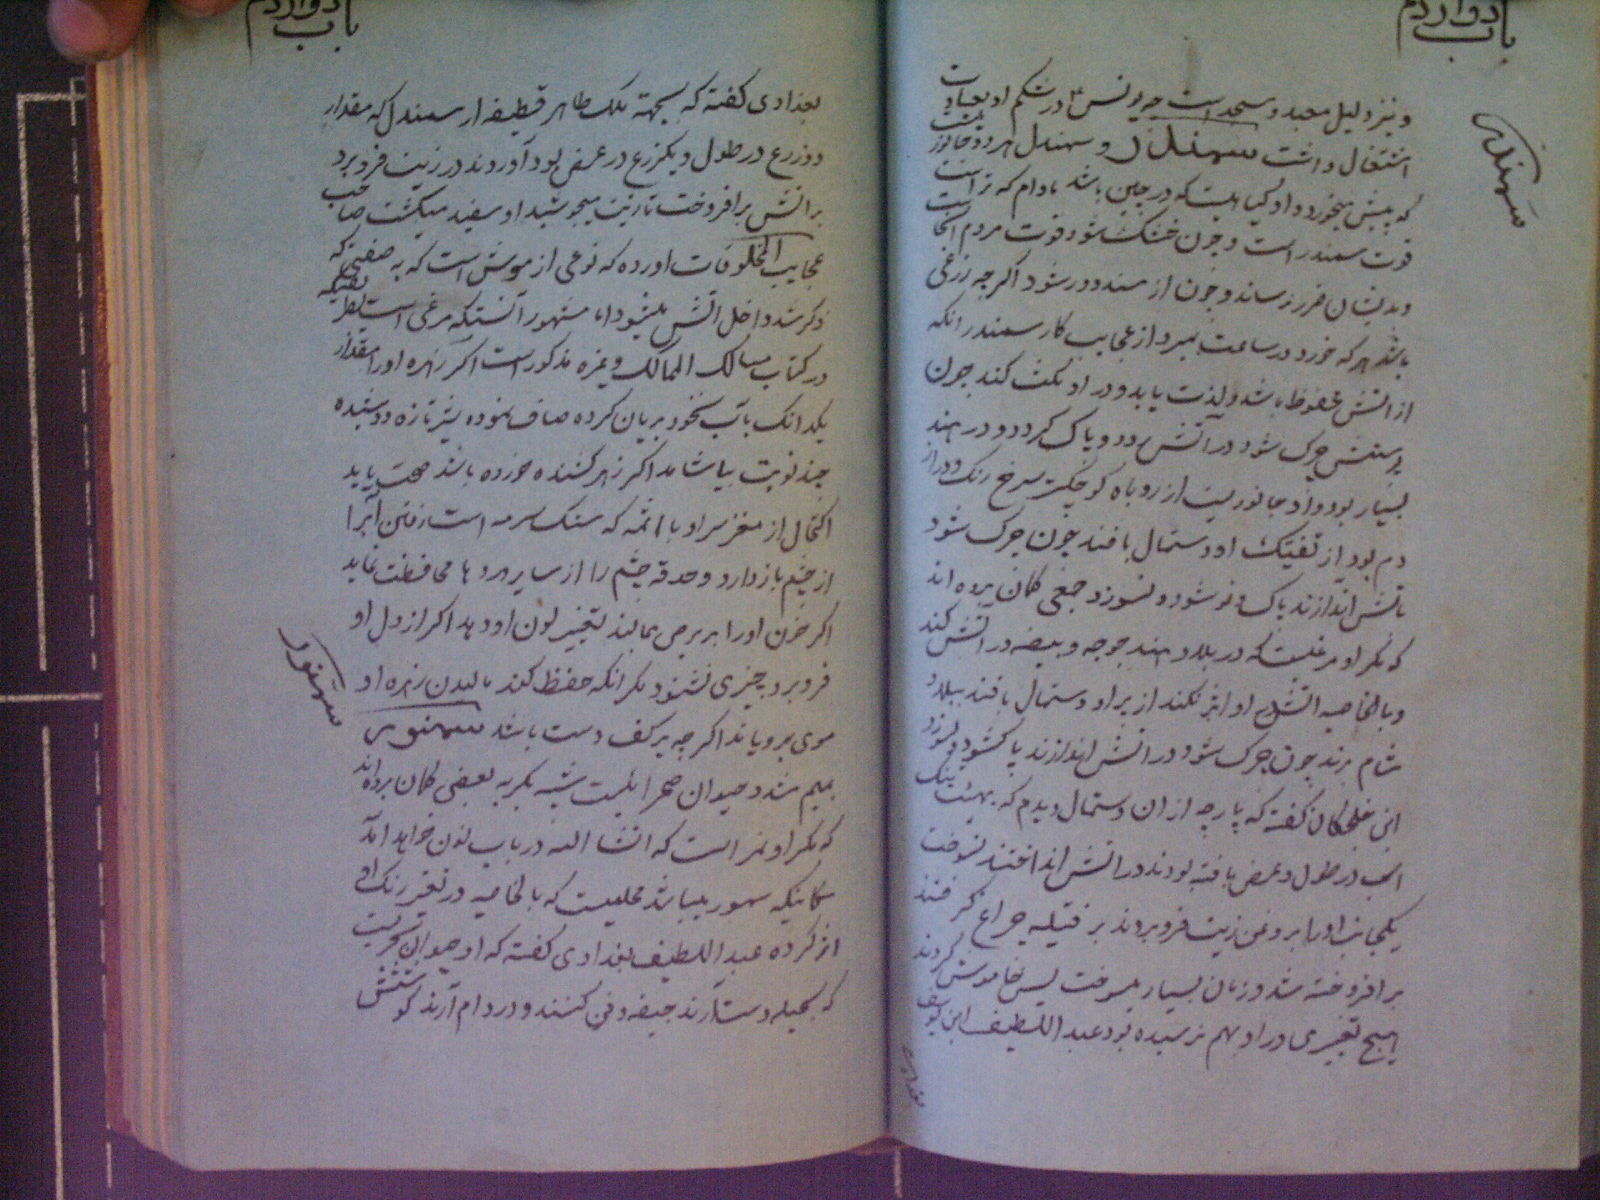 باب دوازدم
و نیز دلیل معبد و مسجدست چه یونس در شکم او بعبادت
اشتغال داشت سمندل و سمندل هر دو جانور
که بیش میخورد و او گیاهیست که در چین باشد مادام که تر است
قوت سمندر است و چون خشک شود قوت مردم آنجا
و بدیشان ضرر نرساند و چون از سند دور شود اگر چه زرعی
باشد هر که خورد در ساعت بمیرد از عجایب کار سمندر آنکه
از آتش محفوظ باشد و لذت یابد و در او مکث کند چون
پوستش چرک شود در آتش رود و پاک گردد و در هند
بسیار بود و او جانوریست از روباه کوچکتر سرخ رنگ و دراز
دم بود از تفتیک او دستمال بافند چون چرک شود
باتش اندازند پاک و نو شود و نسوزد جمعی کمان برده اند
که مکر او مرغیست که در بلاد هند جوجه و بیضه در آتش کند
و بالخاصیه آتش در او اثر نکند از پر او دستمال بافند ببلاد
شام برند چون چرک شود در آتش اندازند پاک شود و نسوزد
ابن خلکان گفته که پارچه از ان دستمال دیدم که بهیئت تنک
اسب در طول و عرض بافته بودند در آتش انداختند نسوخت
یکجانب او را بروغن زیت فرو بردند بر فتیله چراغ گرفتند
برافروخته شد و زمان بسیار میسوخت پس خاموش کردند
هیچ تغییری در او بهم نرسیده بود عبد اللطیف ابن یوسف
سمندل
بغدادی
باب دوازدم
بغدادی گفته که بجهة ملک طاهر قطیفه از سمندل که مقدار
دو زرع در طول و یکزرع در عرض بود آوردند در زیت فرو برد
بر آتش برافروخت تا زیت میجوشید او سفید میگشت صاحب
عجایب المخلوقات آورده که نوعی از موش است که به صفتی که
ذکر شد داخل آتش میشود اما مشهور آنستکه مرغی است
در کتاب مسالک الممالک و غیره مذکور است اگر زهره او را مقدار
یکدانک باب نخود بریان کرده صاف نموده شیر تازه دوشیده
چند نوبت بیاشامد اگر زهر کشنده خورده باشد صحت یابد
اکتحال از مغز سر او با اثمد که سنک سرمه است رفتن آب را
از چشم باز دارد و حدقه چشم را از سایر دردها محافظت نماید
اگر خون او را بر برص بمالند تغییر لون او دهد اگر از دل او
فرو برد چیزی نشنود مکر انکه حفظ کند مالیدن زهره او
موی برویاند اگر چه بر کف دست باشد سمنور
بمیم مشدد حیوان صحرائیست شبیه بگربه بعضی کمان برده اند
که مکر او نمر است که انشا الله در باب نون خواهد آمد
مکانیکه سمور میباشد محلیست که بالخاصیه در تغیر رنگ او
اثر کرده عبد اللطیف بغدادی گفته که او حیوان جریست
که بحیله دست آرند جیفه دفن کنند و در دام آرند گوشتش
سمنور